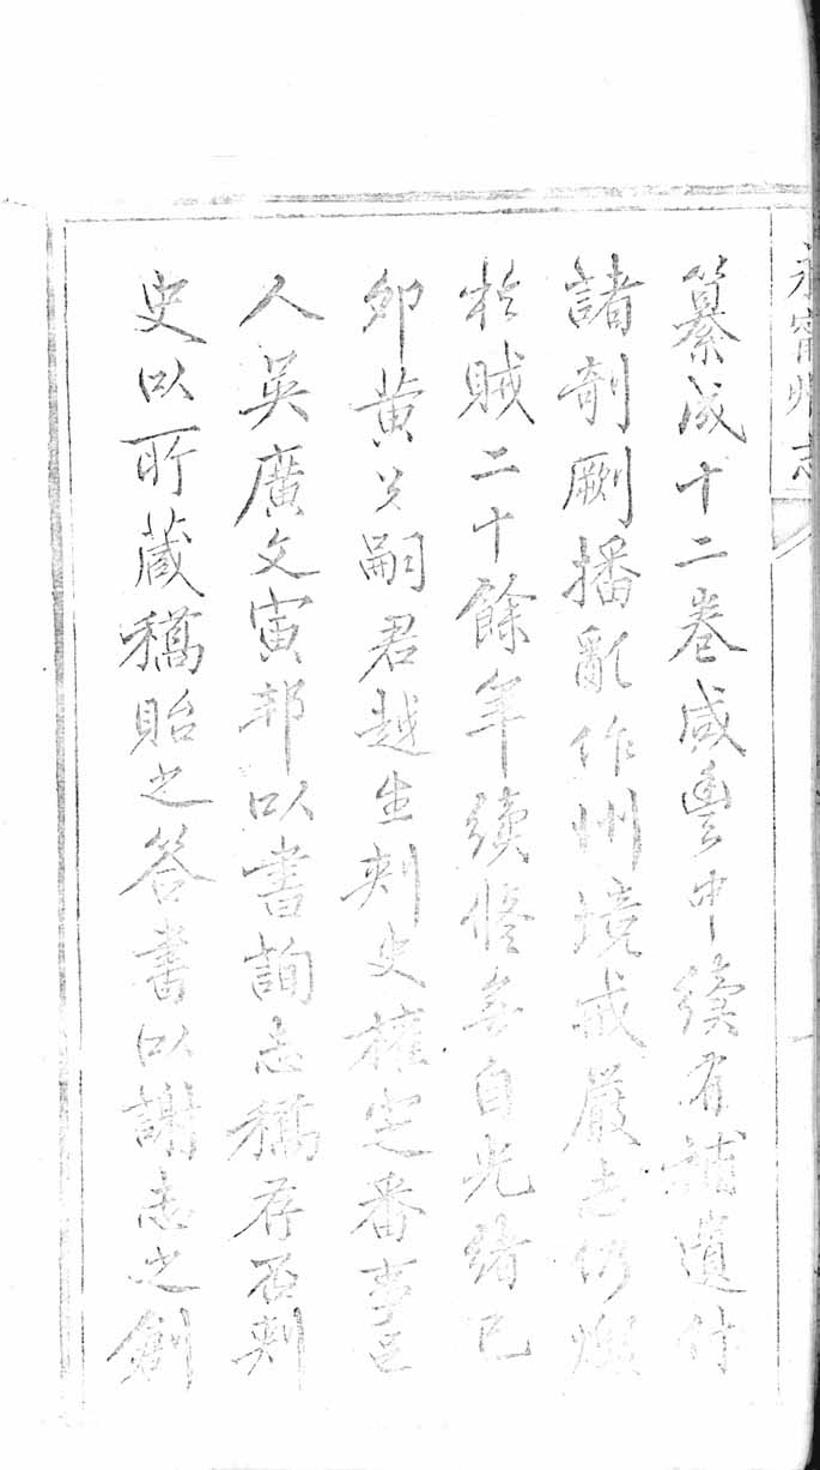 永寧州志
纂成十二卷咸豐中續有補遺付
諸剞劂播亂作州境戒嚴志仍燬
於賊二十餘年續修無自光緒己
卯黄公嗣君越生刺史權定番事邑
人吳廣文寅邦以書詢志稿存否刺
史以所藏稿貽之答書以謝志之創